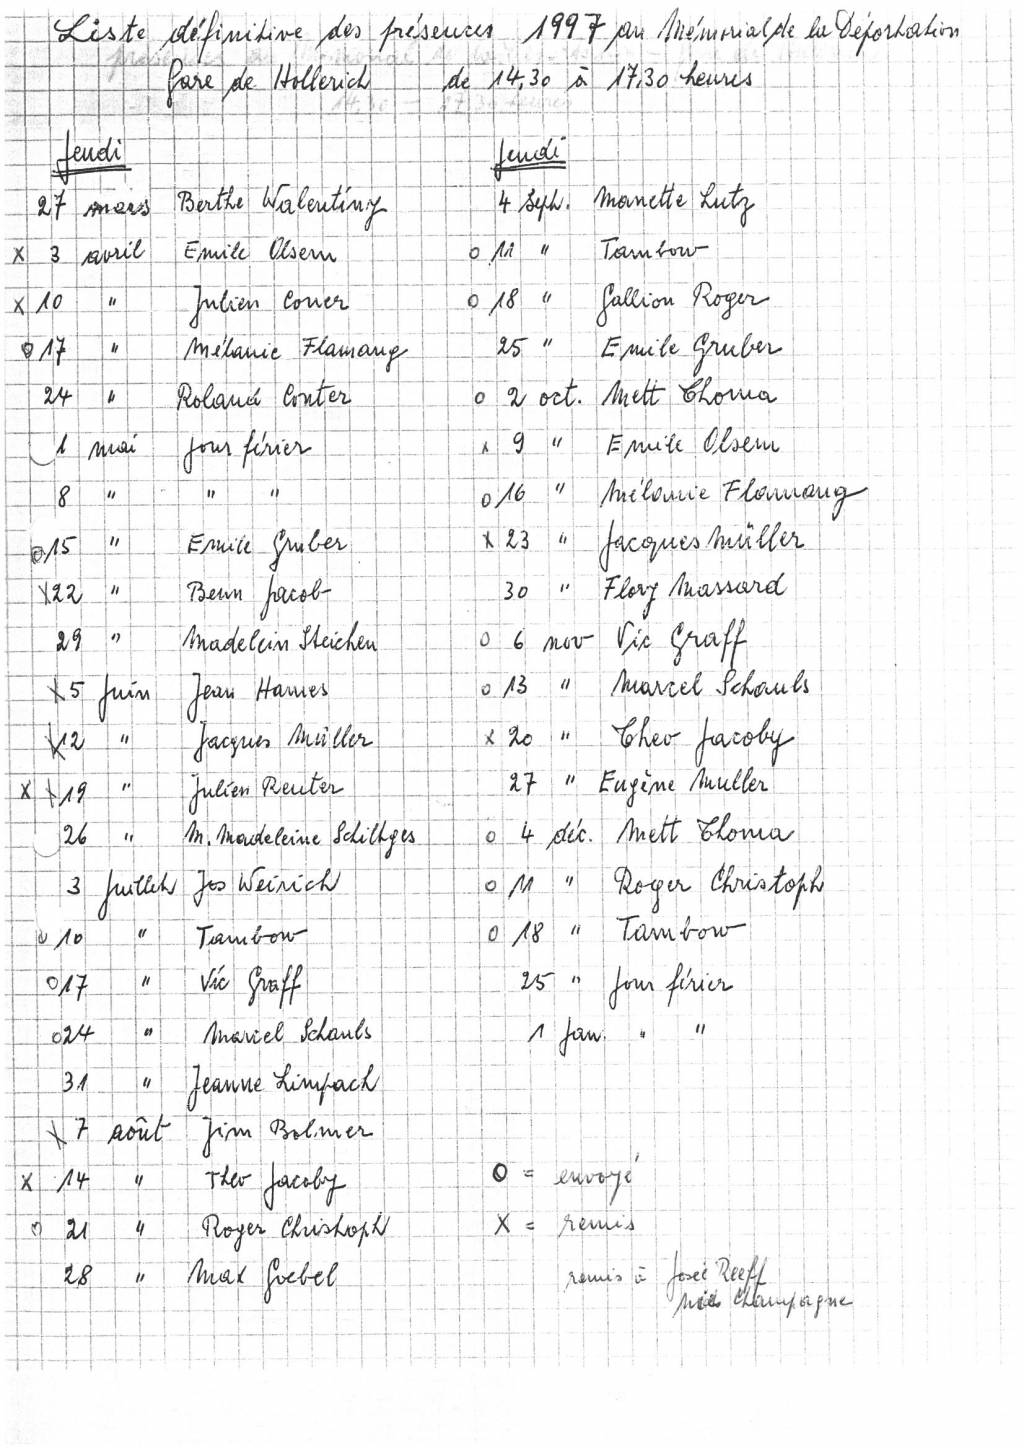 Liste définitive des présences 1997 au Mémorial de la Déportation
Gare de Hollerich de 14,30 à 17,30 heures
Jeudi
27 mars Berthe Walentiny
X 3 avril Emile Olsem
X 10 " Julien Coner
O 17 " Mélanie Flamang
24 " Roland Conter
1 mai jour férier
8 " " "
O 15 " Emile Gruber
X 22 " Benn Jacob
29 " Madelein Steichen
X 5 Juin Jean Hames
X 12 " Jacques Müller
X X 19 " Julien Reuter
26 " M. Madeleine Schiltges
3 Juillet Jos Weirich
O 10 " Tambow
O 17 " Vic Graff
O 24 " Marcel Schauls
31 " Jeanne Limpach
X 7 août Jim Bolmer
X 14 " Théo Jacoby
O 21 " Roger Christoph
28 " Max Goebel
Jeudi
4 Sept. Manette Lutz
O 11 " Tambow
O 18 " Gallion Roger
25 " Emile Gruber
O 2 oct. Mett Thoma
X 9 " Emile Olsem
O 16 " Mélanie Flamang
X 23 " Jacques Müller
30 " Flory Massard
O 6 nov Vic Graff
O 13 " Marcel Schauls
X 20 " Theo Jacoby
27 " Eugène Muller
O 4 déc. Mett Thoma
O 11 " Roger Christoph
O 18 " Tambow
25 " jour férier
1 Jan. " "
O = envoyé
X = remis
remis à Josée Reeff
Champagne